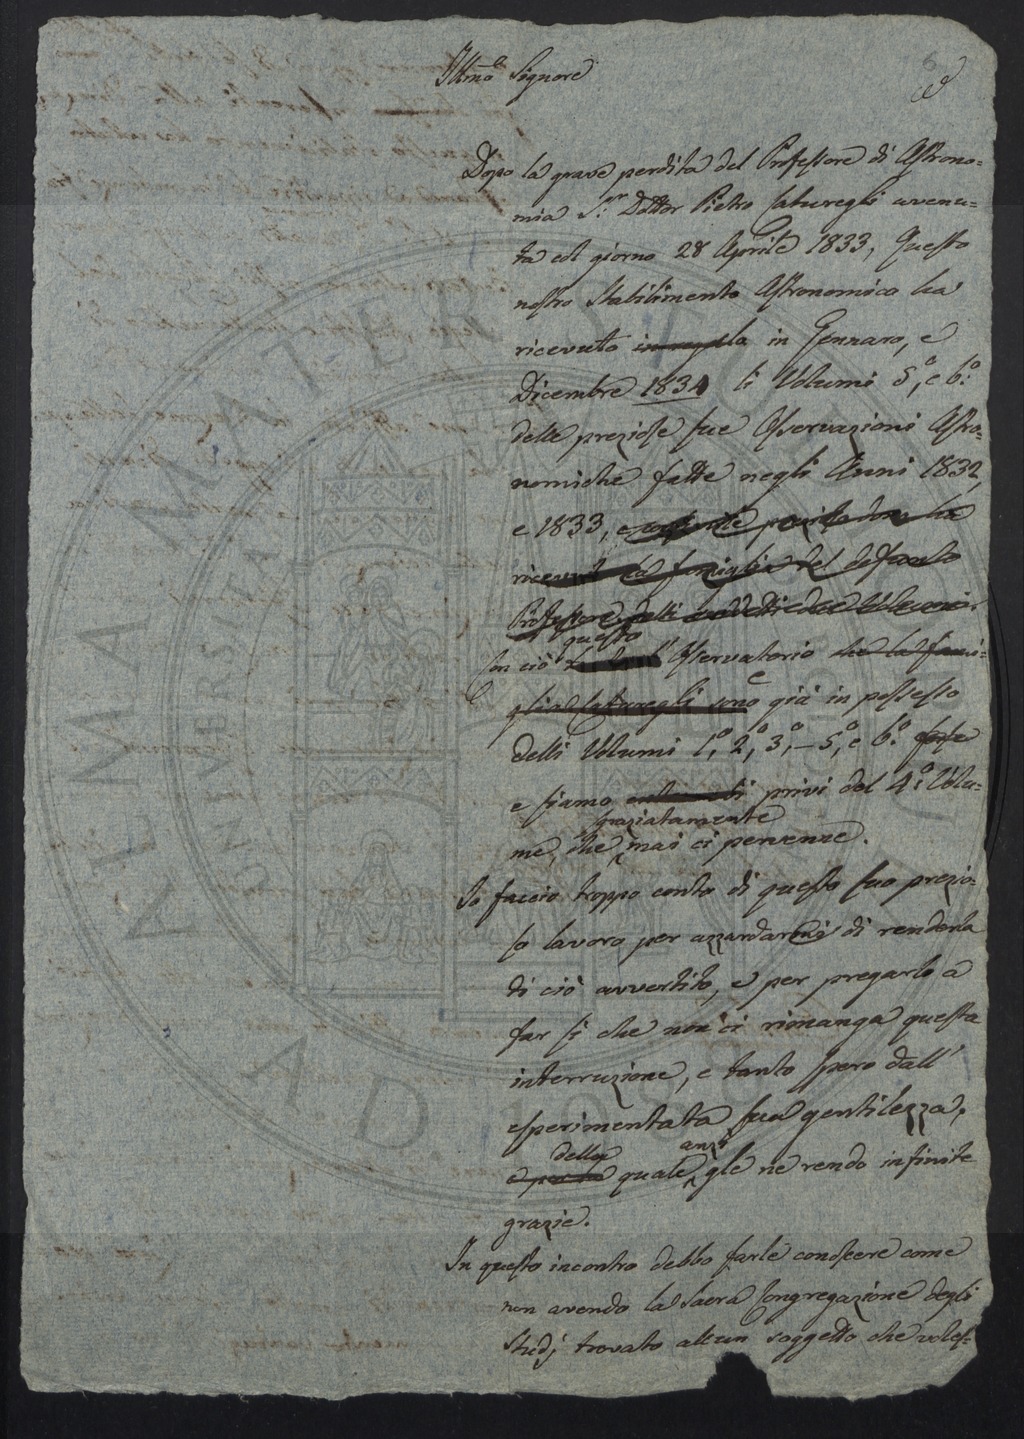 Illmo Signore
Dopo la grave perdita del Professore di Astrono=
mia Sr. Dottor Pietro Caturegli avvenu=
ta col giorno 28 Aprile 1833, Questo
nostro Stabilimento Astronomico ha
ricevuto in regola in Gennaro, e
Dicembre 1834 li Volumi 5°, e 6°.
delle preziose sue Osservazioni Astro=
nomiche fatte negli Anni 1832,
e 1833,
ricevuti la famiglia del defunto
Professore delli suddetti due Volumi.
questo
Con ciò Osservatorio che la fami=
glia Caturegli sono è già in possesso
delli Volumi 1°, 2°, 3°, — 5°, e 6°
e siamo privi del 4°. Volu=
graziatamente
me, che mai ci pervenne.
Io faccio troppo conto di questo suo prezio=
so lavoro per azzardarmi di renderla
di ciò avvertito, e per pregarlo a
far sì che non ci rimanga questa
interruzione, e tanto spero dall'
esperimentata sua gentilezza,
della anzi
e per la quale gle ne rendo infinite
grazie.
In questo incontro debbo farle conoscere come
non avendo la Sacra Congregazione degli
Studj trovato alcun soggetto che voles=
MATER STUD
ALMA
UNIVERSITAS
A.D. 1088